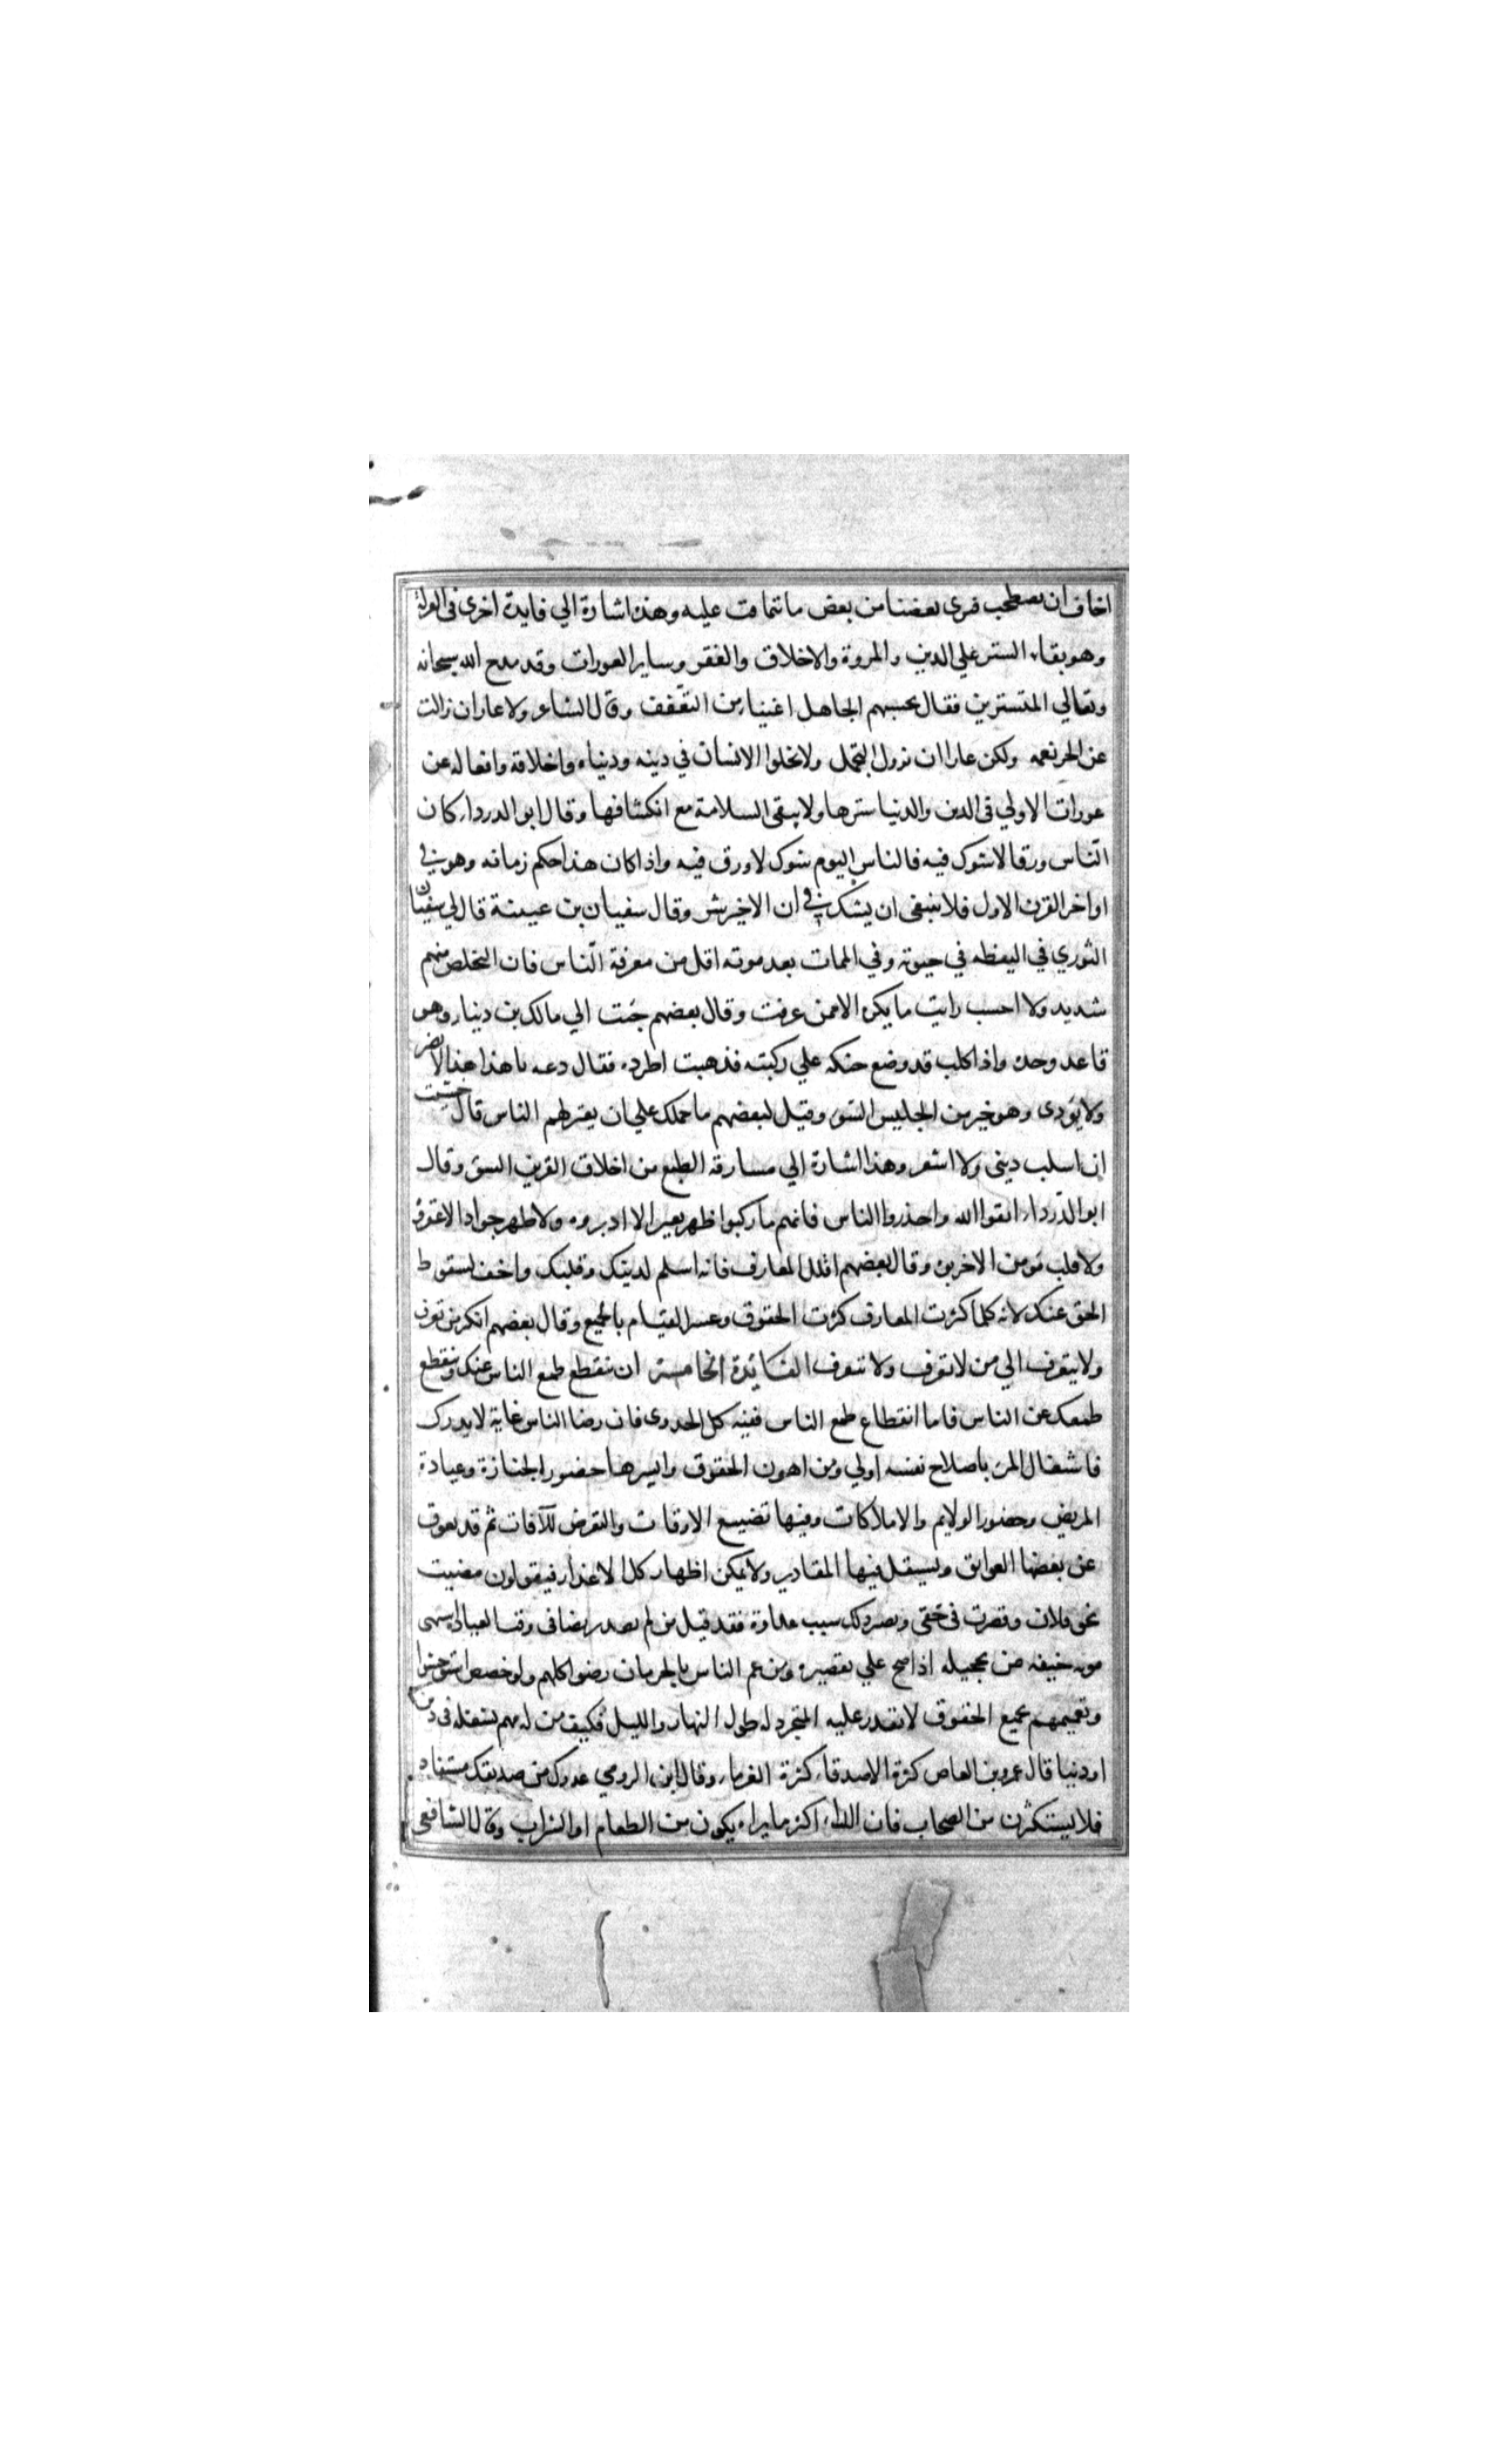 اخاف ان نصطحب فيرى بعضنا من بعض ما نتماقت عليه وهذه اشارة الي فايدة اخرى في العزلة
وهو بقاء الستر علي الدين والمروة والاخلاق والفقر وساير العورات وقد مدح الله سبحانه
وتعالي المتسترين فقال يحسبهم الجاهل اغنياء من التعفف وقال الشاعر ولا عار ان زالت
عن الحر نعمه ولكن عارا ان تزول التجمل ولا تخلوا الانسان في دينه ودنياه واخلاقه وافعاله عن
عورات الاولي في الدين والدنيا سترها ولا يبقى السلامة مع انكشافها وقال ابو الدرداء كان
الناس ورقا لا شوك فيه فالناس اليوم شوك لا ورق فيه واذا كان هذا حكم زمانه وهو في
اواخر القرن الاول فلا ينبغى ان يشك في ان الاخير شر وقال سفيان بن عيينة قال لي سفيان
الثوري في اليقظه في حيوته وفي الممات بعد موته اقل من معرفة الناس فان التخلص منهم
شديد ولا احسب رايت ما يكره الا ممن عرفت وقال بعضهم جئت الي مالك بن دينار وهو
قاعد وحده واذا كلب قد وضع حنكه علي ركبته فذهبت اطرده فقال دعه يا هذا هذا لا يضر
ولا يؤدى وهو خير من الجليس السوء وقيل لبعضهم ما حملك علي ان يعتزلهم الناس قال خشيت
ان اسلب دينى ولا اشعر وهذا اشارة الي مسارقة الطبع من اخلاق القرين السوء وقال
ابو الدرداء اتقوا الله واحذروا الناس فانهم ما ركبوا ظهر بعير الا ادبروه ولا ظهر جواد الا عقروه
ولا قلب مومن الا خربوه وقال بعضهم اقلل المعارف فانه اسلم لدينك وقلبك واخف لسقوط
الحق عنك لانه كلما كثرت المعارف كثرت الحقوق وعسر القيام بالجميع وقال بعضهم انكر من تعرف
ولا يتعرف الي من لا تعرف ولا تتعرف الفائدة الخامسة ان ينقطع طمع الناس عنك وينقطع
طمعك عن الناس فاما انقطاع طمع الناس ففيه كل الجدوى فان رضا الناس غاية لا يدرك
فاشغال المرء باصلاح نفسه اولي ومن اهون الحقوق وايسرها حضور الجنازة وعيادة
المريض وحضور الولايم والاملاكات وفيها تضييع الاوقات والتعرض للآفات ثم قد يعوق
عن بعضها العوايق ويستقل فيها المقادير ولا يمكن اظهار كل الاعذار فيقولون مضيت
نحو فلان وقصرت في حقى ويصير ذلك سبب عداوة فقد قيل من لم
اذا صح علي تقصيره ومن عم الناس بالحرمان رضوا كلهم ولو خصص استوحشوا
وتعميمهم بجميع الحقوق لا تقدر عليه المتجرد له طول النهار والليل فكيف من له مهم يشغله في دين
او دنيا قال عمرو بن العاص كثرة الاصدقاء كثرة الغرماء وقال ابن الرومي عدوك من صديقك مستفاد
فلا يستكثرن من الصحاب فان الداء اكثر ما يراه يكون من الطعام او الشراب وقال الشافعي